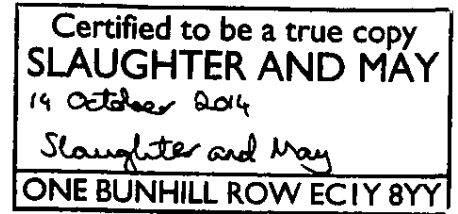 Certified to be a true copy
SLAUGHTER AND MAY
14 October 2014
Slaughter and May
ONE BUNHILL ROW EC1Y 8YY